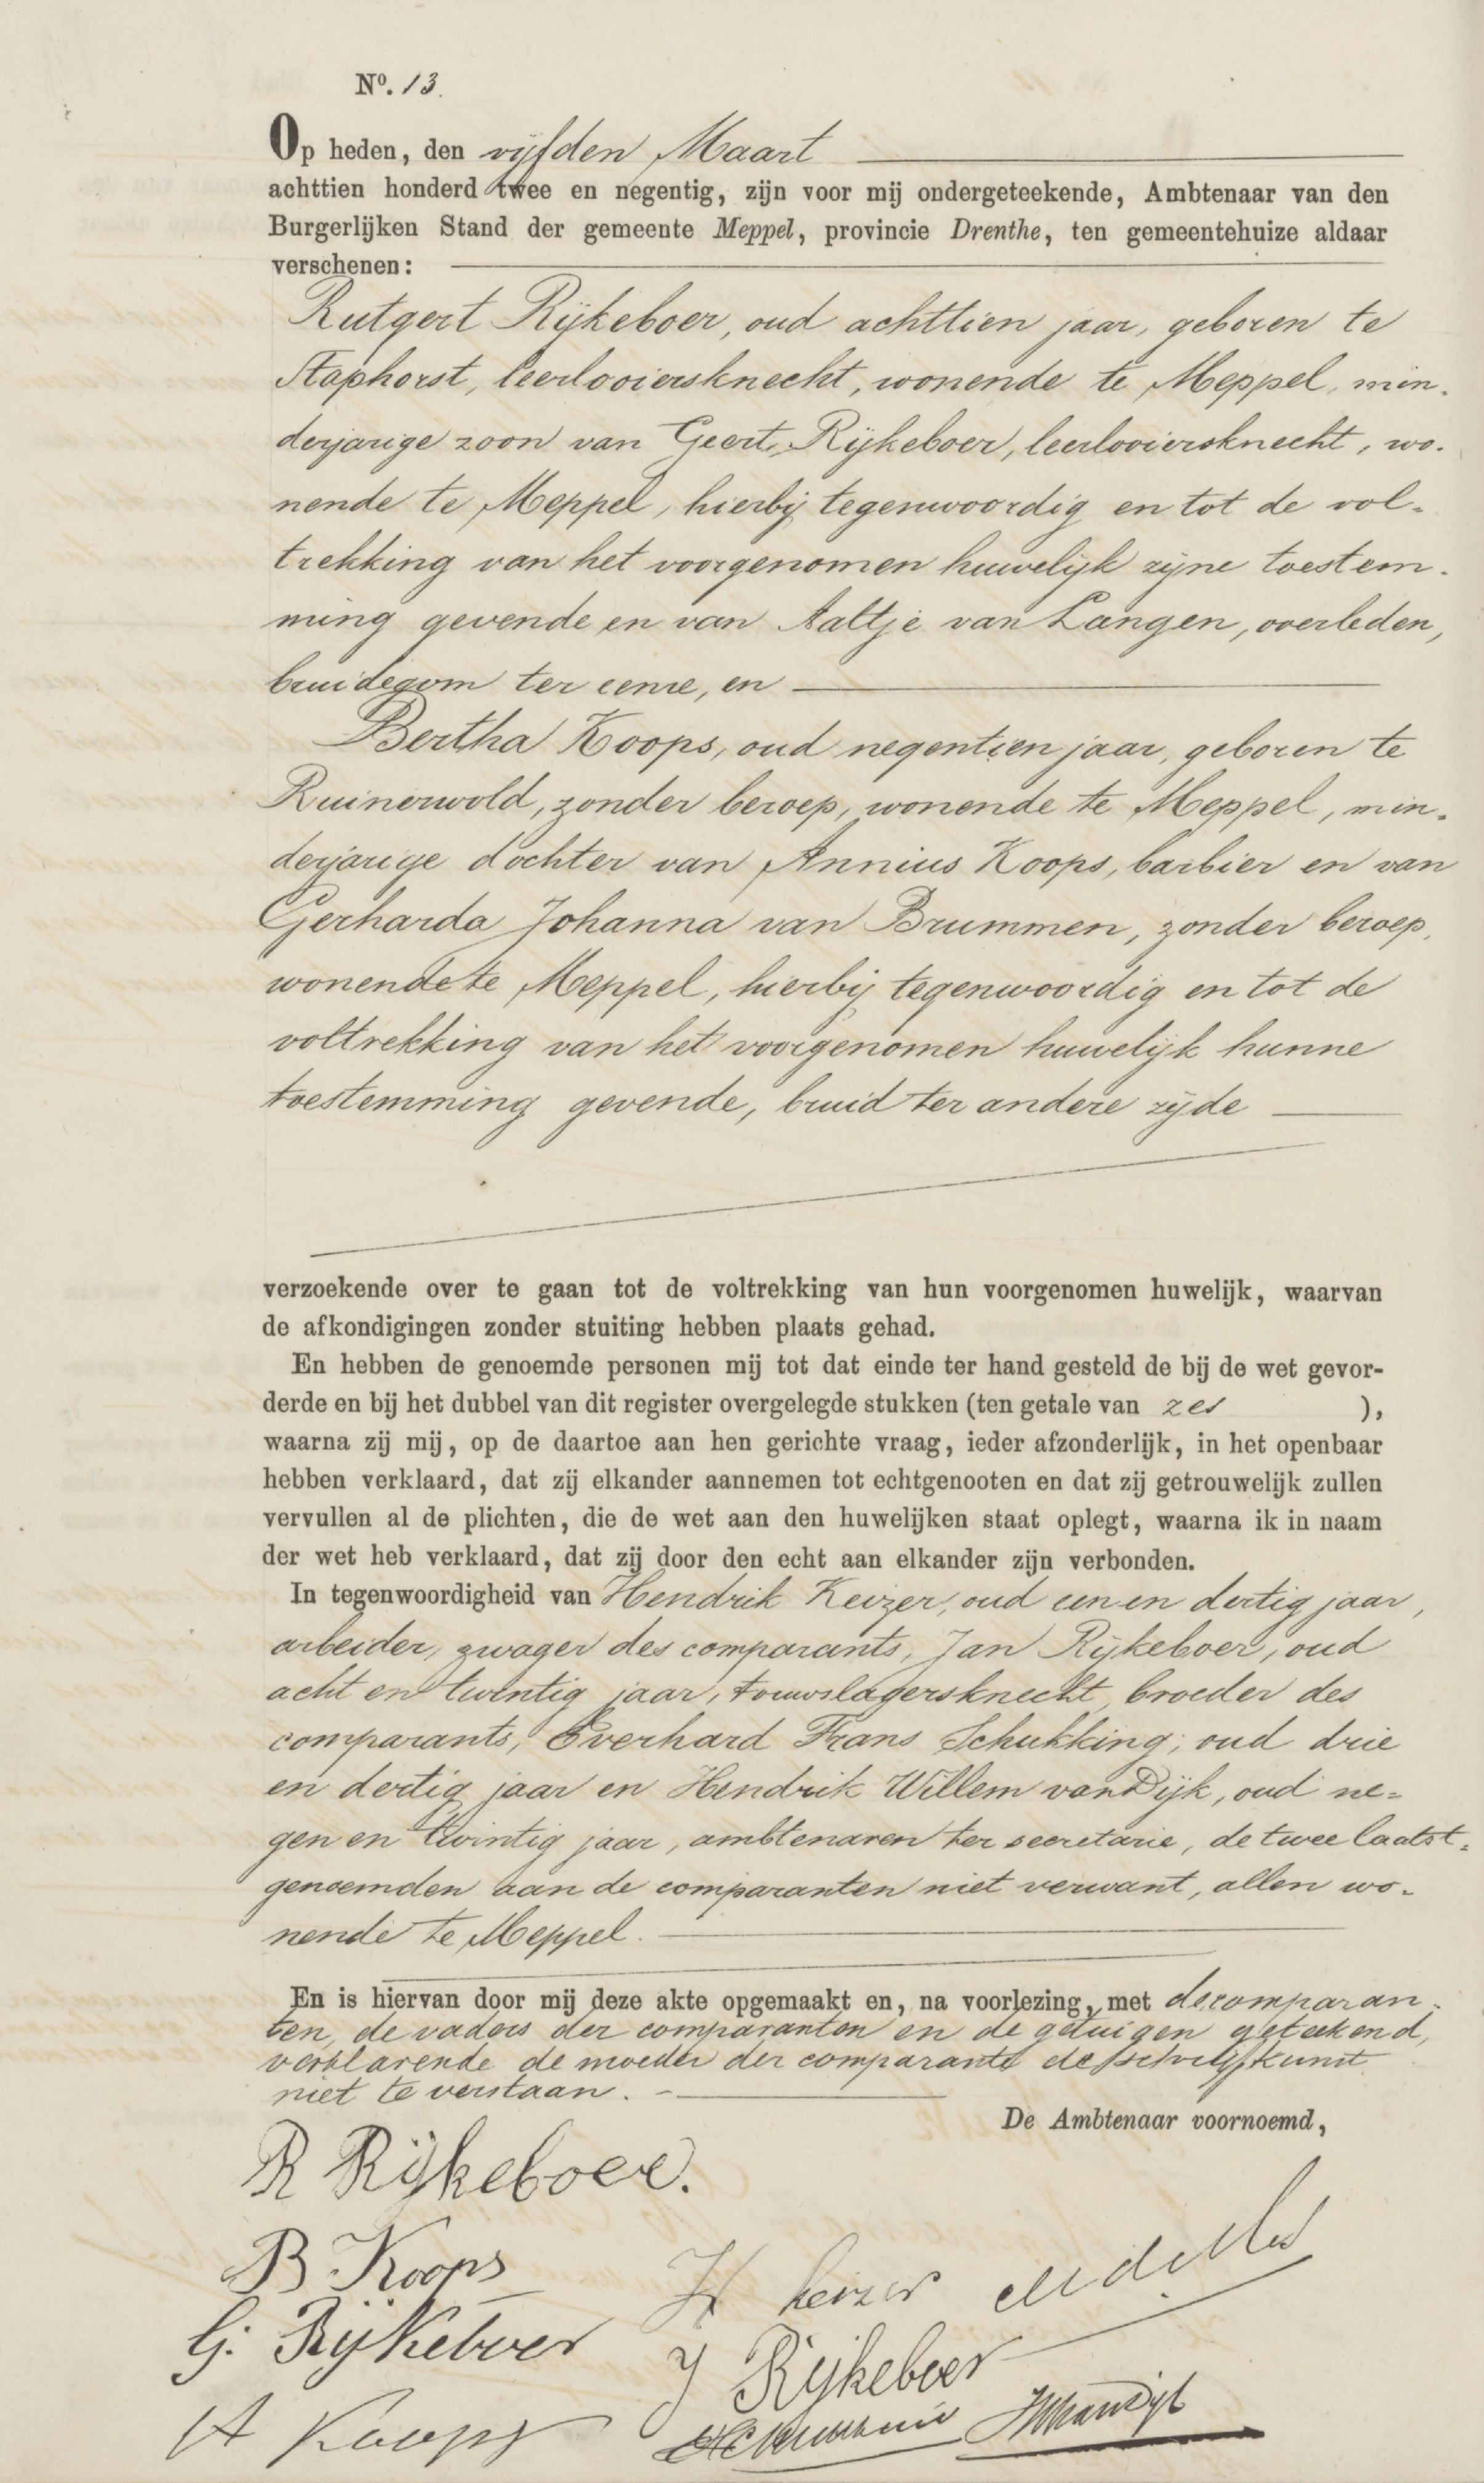 Nº. 13.
Op heden, den vijfden Maart
achttien honderd twee en negentig, zijn voor mij ondergeteekende, Ambtenaar van den
Burgerlijken Stand der gemeente Meppel, provincie Drenthe, ten gemeentehuize aldaar
verschenen:
Rutgert Rijkeboer, oud achttien jaar, geboren te
Staphorst, leerlooiersknecht, wonende te Meppel, min-
derjarige zoon van Geert Rijkeboer, leerlooiersknecht, wo-
nende te Meppel, hierbij tegenwoordig en tot de vol-
trekking van het voorgenomen huwelijk zijne toestem-
ming gevende en van Aaltje van Langen, overleden,
bruidegom ter eenre, en
Bertha Koops, oud negentien jaar, geboren te
Ruinerwold, zonder beroep, wonende te Meppel, min-
derjarige dochter van Annius Koops, barbier en van
Gerharda Johanna van Brummen, zonder beroep,
wonende te Meppel, hierbij tegenwoordig en tot de
voltrekking van het voorgenomen huwelijk hunne
toestemming gevende, bruid ter andere zijde
verzoekende over te gaan tot de voltrekking van hun voorgenomen huwelijk, waarvan
de afkondigingen zonder stuiting hebben plaats gehad.
En hebben de genoemde personen mij tot dat einde ter hand gesteld de bij de wet gevor-
derde en bij het dubbel van dit register overgelegde stukken (ten getale van zes ),
waarna zij mij, op de daartoe aan hen gerichte vraag, ieder afzonderlijk, in het openbaar
hebben verklaard, dat zij elkander aannemen tot echtgenooten en dat zij getrouwelijk zullen
vervullen al de plichten, die de wet aan den huwelijken staat oplegt, waarna ik in naam
der wet heb verklaard, dat zij door den echt aan elkander zijn verbonden.
In tegenwoordigheid van Hendrik Keizer, oud een en dertig jaar,
arbeider, zwager des comparants, Jan Rijkeboer, oud
acht en twintig jaar, touwslagersknecht, broeder des
comparants, Everhard Frans Schukking, oud drie
en dertig jaar en Hendrik Willem van Dijk, oud ne-
gen en twintig jaar, ambtenaren ter secretarie, de twee laatst-
genoemden aan de comparanten niet verwant, allen wo-
nende te Meppel.
En is hiervan door mij deze akte opgemaakt en, na voorlezing, met de comparan-
ten, de vaders der comparanten en de getuigen geteekend,
verklarende de moeder der comparante de schrijfkunst
niet te verstaan.
De Ambtenaar voornoemd,
R Rijkeboer.
B Koops
H keizer
G. Rijkeboer
J Rijkeboer
A Koops
HWvanDijk